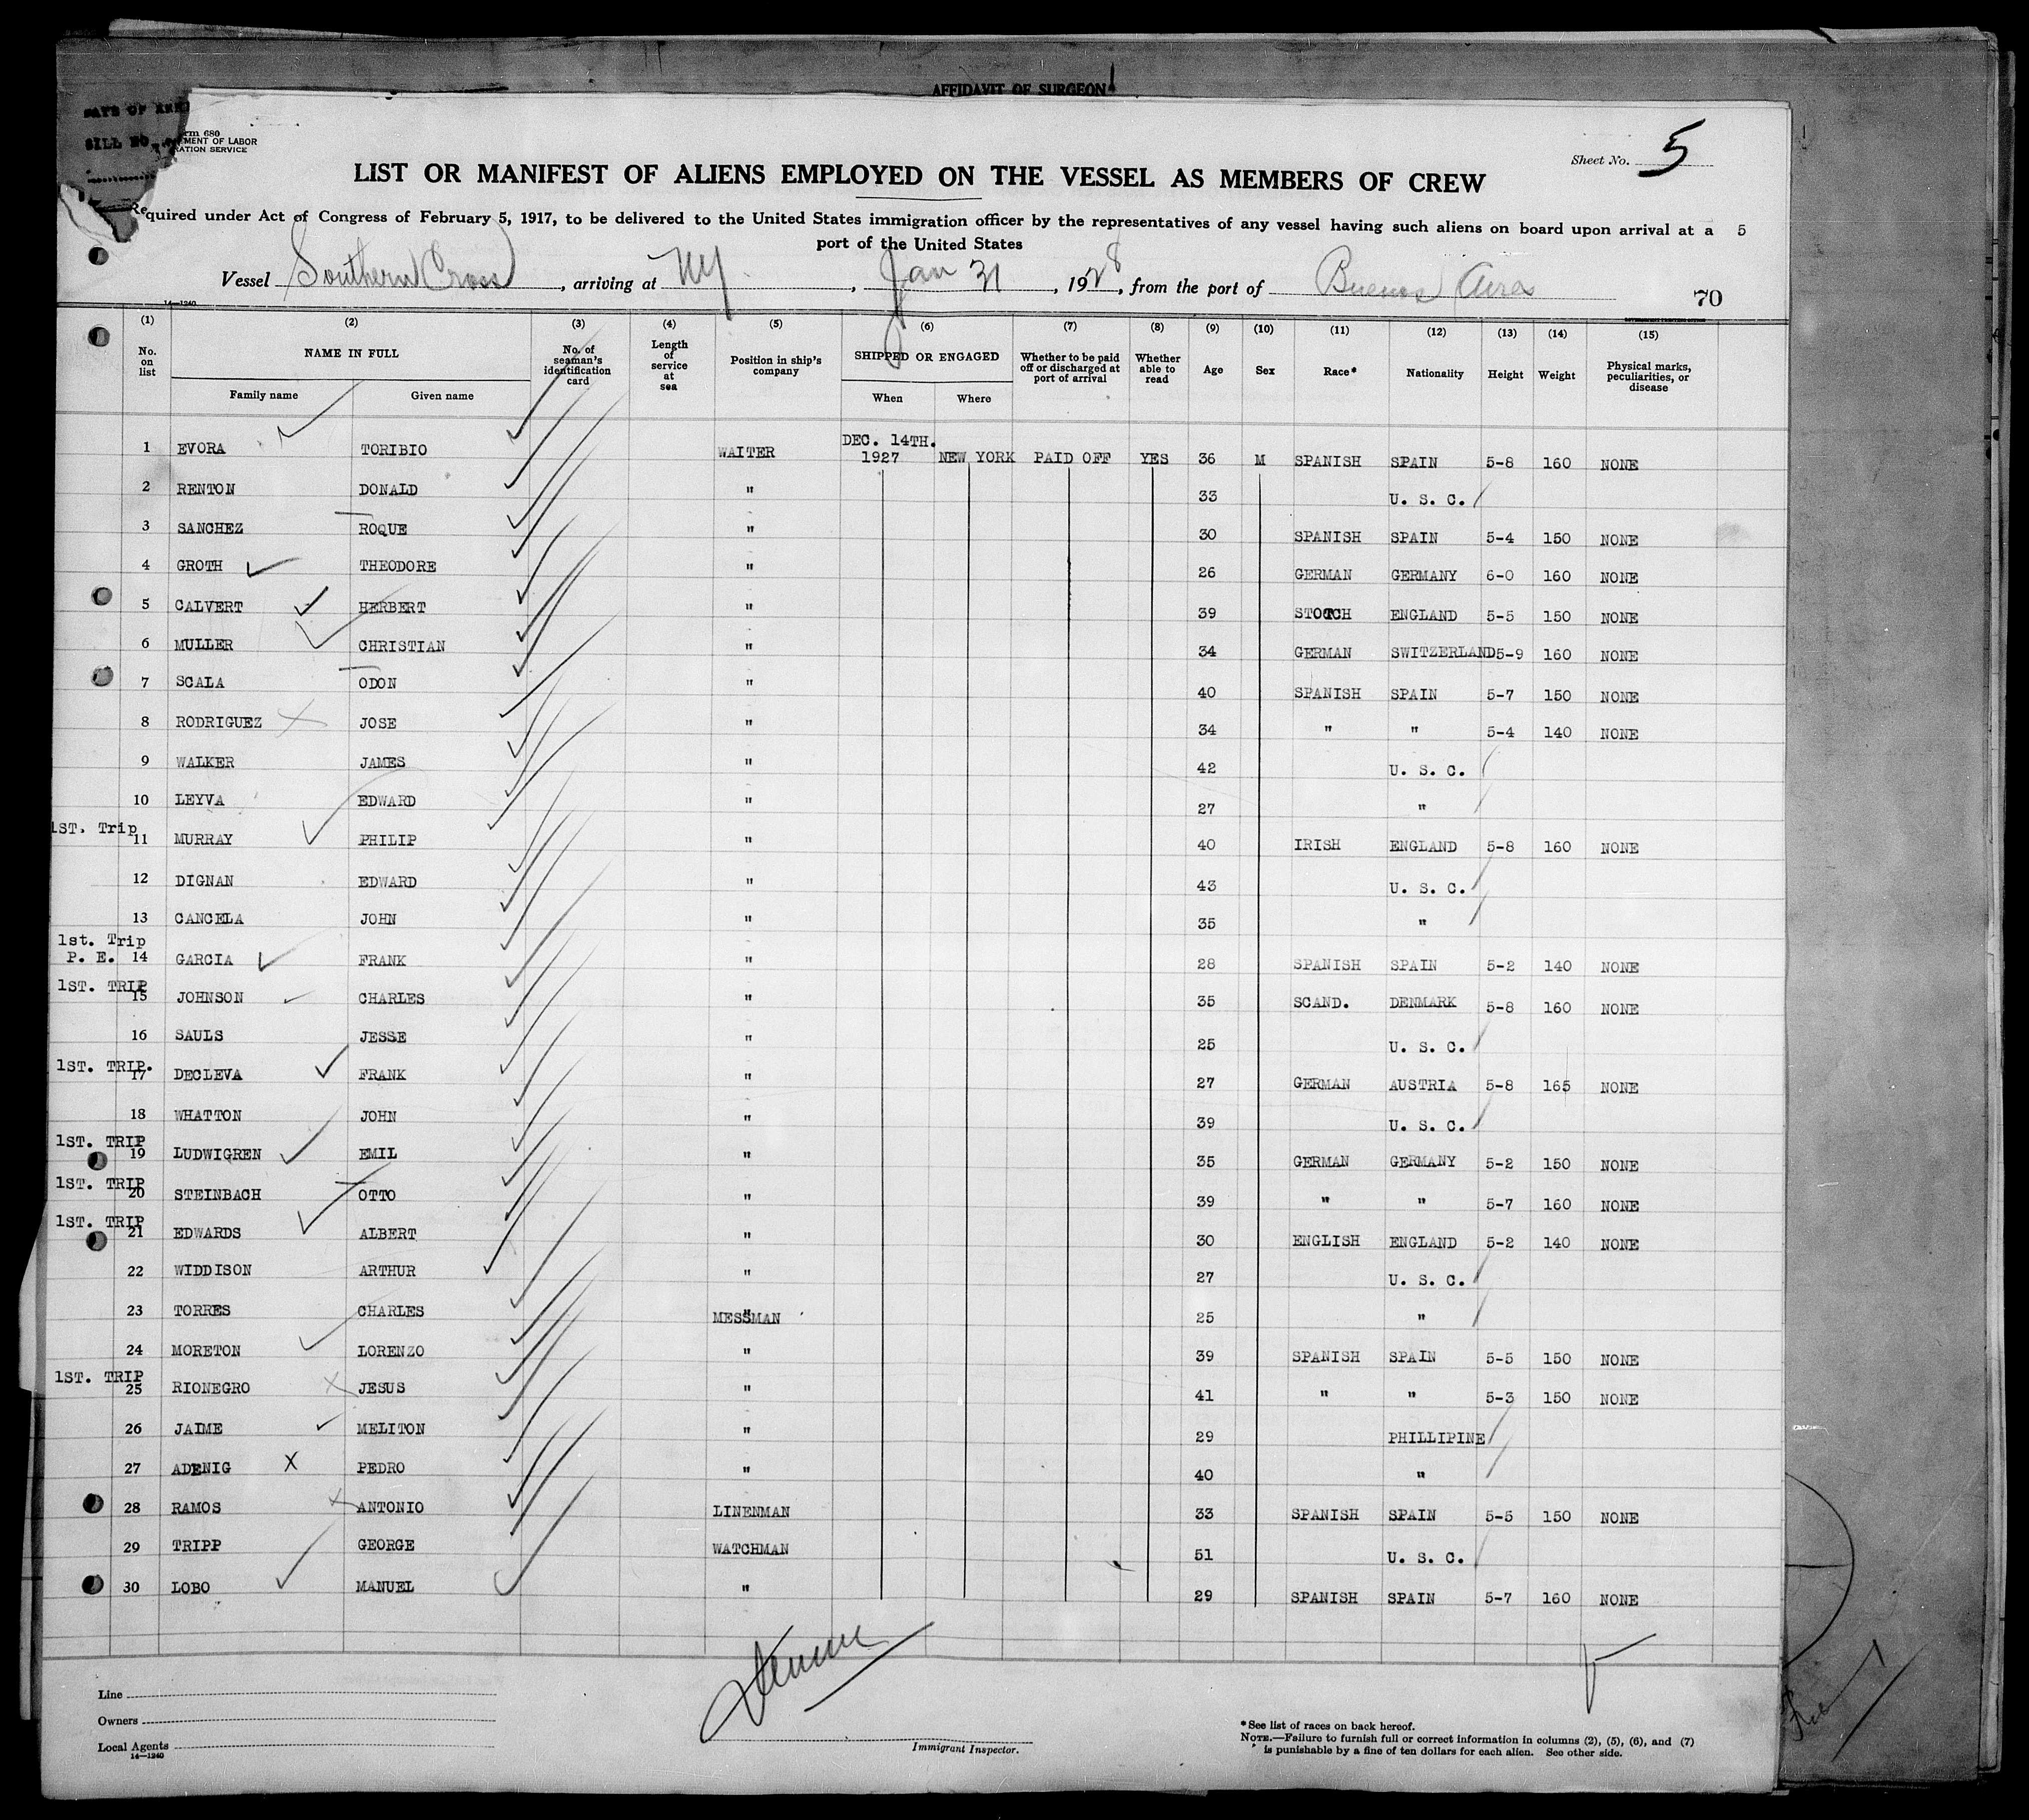 AFFIDAVIT OF SURGEON
DATE OF
BILL NO.
rm 680
MENT OF LABOR
RATION SERVICE
Sheet No. 5
LIST OR MANIFEST OF ALIENS EMPLOYED ON THE VESSEL AS MEMBERS OF CREW
Required under Act of Congress of February 5, 1917, to be delivered to the United States immigration officer by the representatives of any vessel having such aliens on board upon arrival at a 5
port of the United States
Vessel Southern Cross, arriving at NY, Jan 31, 1928, from the port of Buenos Aires
14—1240
70
(1) (2) (3) (4) (5) (6) (7) (8) (9) (10) (11) (12) (13) (14) (15)
No. on list NAME IN FULL No. of seaman's identification card Length of service at sea Position in ship's company SHIPPED OR ENGAGED Whether to be paid off or discharged at port of arrival Whether able to read Age Sex Race* Nationality Height Weight Physical marks, peculiarities, or disease
Family name Given name When Where
1 EVORA TORIBIO WAITER DEC. 14TH. 1927 NEW YORK PAID OFF YES 36 M SPANISH SPAIN 5-8 160 NONE
2 RENTON DONALD " 33 U. S. C.
3 SANCHEZ ROQUE " 30 SPANISH SPAIN 5-4 150 NONE
4 GROTH THEODORE " 26 GERMAN GERMANY 6-0 160 NONE
5 CALVERT HERBERT " 39 STOTCH ENGLAND 5-5 150 NONE
6 MULLER CHRISTIAN " 34 GERMAN SWITZERLAND 5-9 160 NONE
7 SCALA ODON " 40 SPANISH SPAIN 5-7 150 NONE
8 RODRIGUEZ JOSE " 34 " " 5-4 140 NONE
9 WALKER JAMES " 42 U. S. C.
10 LEYVA EDWARD " 27 "
1ST. Trip 11 MURRAY PHILIP " 40 IRISH ENGLAND 5-8 160 NONE
12 DIGNAN EDWARD " 43 U. S. C.
13 CANCELA JOHN " 35 "
1st. Trip
P. E. 14 GARCIA FRANK " 28 SPANISH SPAIN 5-2 140 NONE
1ST. TRIP 15 JOHNSON CHARLES " 35 SCAND. DENMARK 5-8 160 NONE
16 SAULS JESSE " 25 U. S. C.
1ST. TRIP. 17 DECLEVA FRANK " 27 GERMAN AUSTRIA 5-8 165 NONE
18 WHATTON JOHN " 39 U. S. C.
1ST. TRIP 19 LUDWIGREN EMIL " 35 GERMAN GERMANY 5-2 150 NONE
1ST. TRIP 20 STEINBACH OTTO " 39 " " 5-7 160 NONE
1ST. TRIP 21 EDWARDS ALBERT " 30 ENGLISH ENGLAND 5-2 140 NONE
22 WIDDISON ARTHUR " 27 U. S. C.
23 TORRES CHARLES MESSMAN 25 "
24 MORETON LORENZO " 39 SPANISH SPAIN 5-5 150 NONE
1ST. TRIP 25 RIONEGRO JESUS " 41 " " 5-3 150 NONE
26 JAIME MELITON " 29 PHILLIPINE
27 ADENIG PEDRO " 40 "
28 RAMOS ANTONIO LINENMAN 33 SPANISH SPAIN 5-5 150 NONE
29 TRIPP GEORGE WATCHMAN 51 U. S. C.
30 LOBO MANUEL " 29 SPANISH SPAIN 5-7 160 NONE
Line
Owners
Local Agents
14—1240
Immigrant Inspector.
*See list of races on back hereof.
NOTE.—Failure to furnish full or correct information in columns (2), (5), (6), and (7)
is punishable by a fine of ten dollars for each alien. See other side.